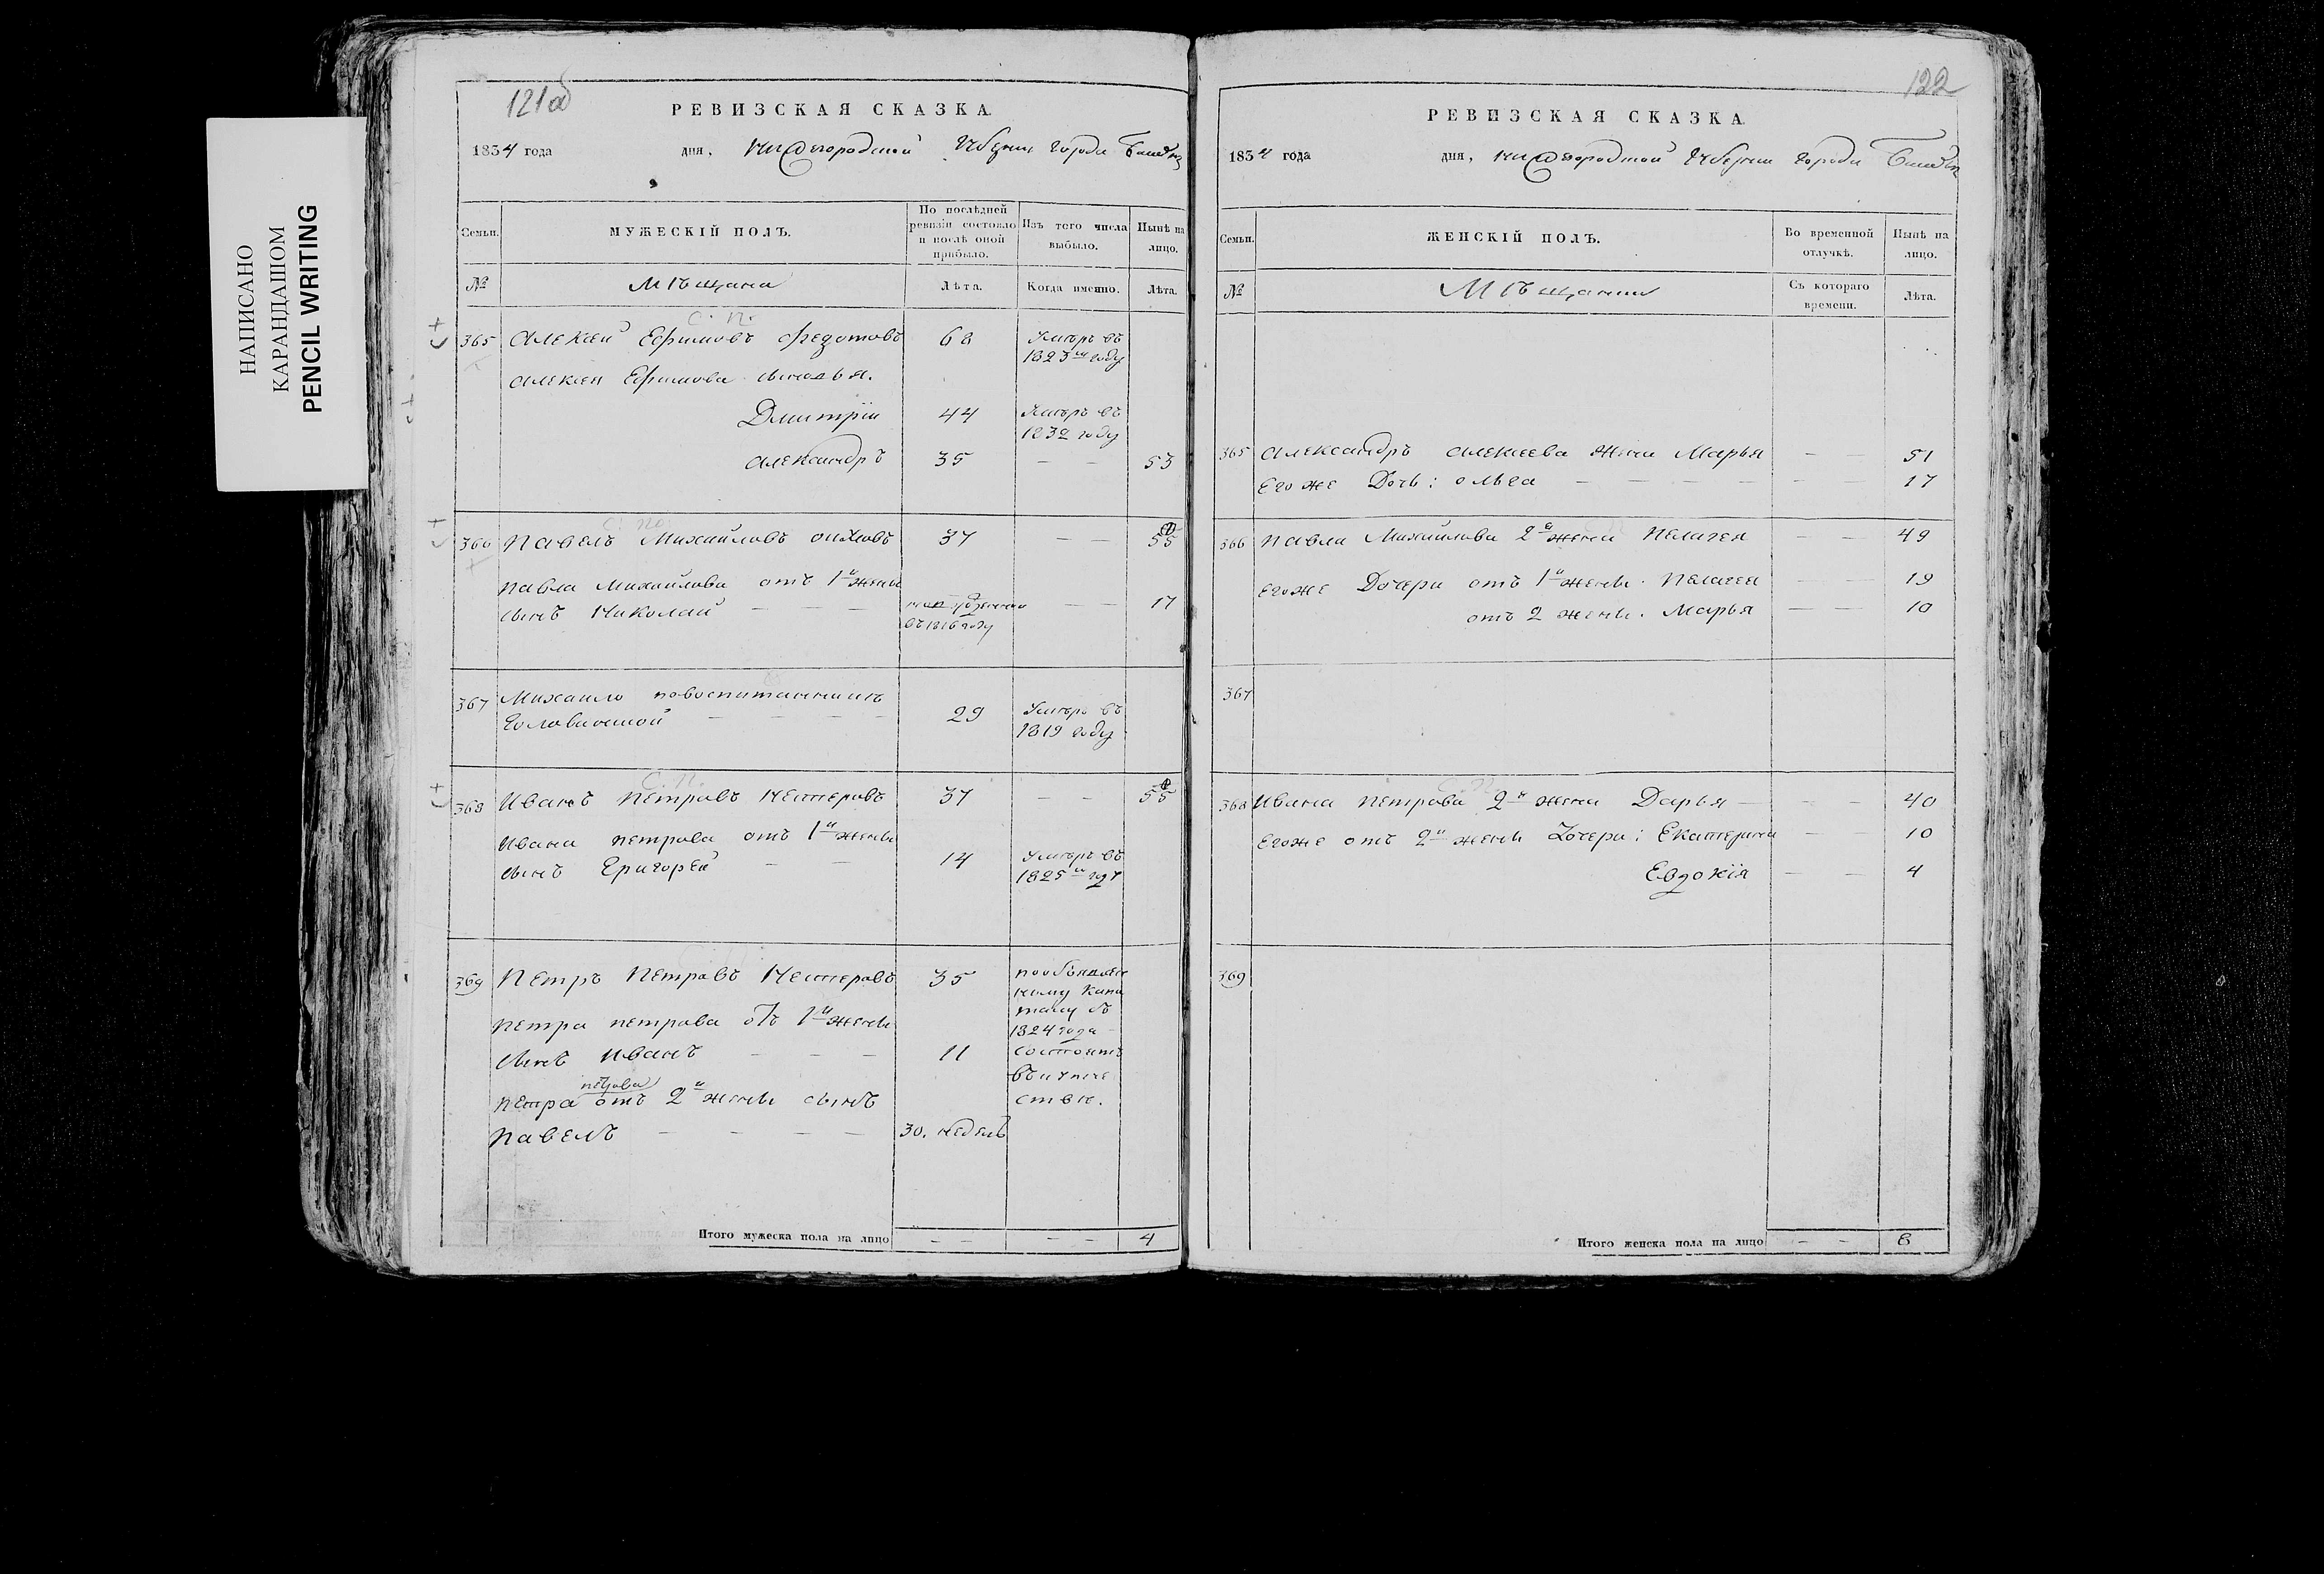 НАПИСАНО
КАРАНДАШОМ
PENCIL WRITING
121об
РЕВИЗСКАЯ СКАЗКА.
1834 года дня, Нижегородской Губерніи города
Семьи. МУЖЕСКІЙ ПОЛЪ. По послѣдней ревизіи состояло и послѣ оной прибыло. Изъ того числа выбыло. Нынѣ на лицо.
№ Мѣщана Лѣта. Когда именно. Лѣта.
С. П.
365 Алексей Ефимовъ Федотовъ 68 Умеръ въ 1823м году
Алексея Ефимова сыновья.
Дмитрiй 44 Умеръ въ 1832 году
Александръ 35 — — 53
366 Павелъ Михайловъ 37 — — 55
Павла Михайлова отъ 1й жены
сынъ Николай — — — въ 1816 году — — 17
367 Михаило
— — — — 29 Умеръ въ 1819 году
С. П.
368 Иванъ Петровъ Нестеровъ 37 — — 55
Ивана Петрова отъ 1й жены
сынъ Григорей — — 14 Умеръ въ 1825м году
369 Петръ Петровъ Нестеровъ 35 по объявлен
ному капи
талу съ
Петра Петрова отъ 1й жены
1824 года
сынъ Иванъ — — — 11 состоитъ
въ купече
Петра Петрова отъ 2й жены сынъ
стве.
Павелъ — — — — 30. недель
Итого мужеска пола на лицо — — — — 4
122
РЕВИЗСКАЯ СКАЗКА.
1834 года дня, Нижегородской Губерніи города
Семьи. ЖЕНСКІЙ ПОЛЪ. Во временной отлучкѣ. Нынѣ на лицо.
№ Мѣщанки Съ котораго времени. Лѣта.
365 Александръ Алексеева жена Марья — — 51
Его же Дочь: Ольга — — — — — 17
366 Павла Михайлова 2я жена Пелагея — — 49
Его же Дочери отъ 1й жены. Пелагея — — 19
отъ 2 жены. Марья — — 10
367
С. П.
368 Ивана Петрова 2я жена Дарья — — — 40
Его же отъ 2й жены Дочери: Екатерина — — 10
Евдокiя — — 4
369
Итого женска пола на лицо — — 8